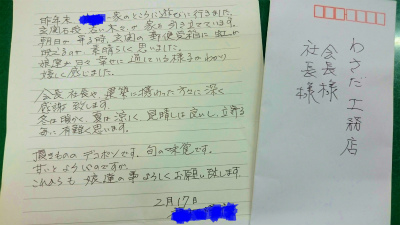 昨年末 家のところに遊びに行きました。
玄関右横の 若い木々が 家を引き立てています。
朝日が 昇る時、玄関の 郵便受箱に 虹が
映るのが 素晴らしく 思いました。
娘達が 日々 幸せに 過している様子がわかり
嬉しく感じました。
会長 社長や 建築に携わった方々に深く
感謝 致します。
冬は暖かく、夏は涼しく 見晴しは良いし、立寄る
毎に有難く思います。
農きものの デコポンです。旬の味覚です。
甘いと よろしいのですが
これからも 娘達の事よろしくお願い致します。
2月17日
わさだ工務店
会長様
社長様